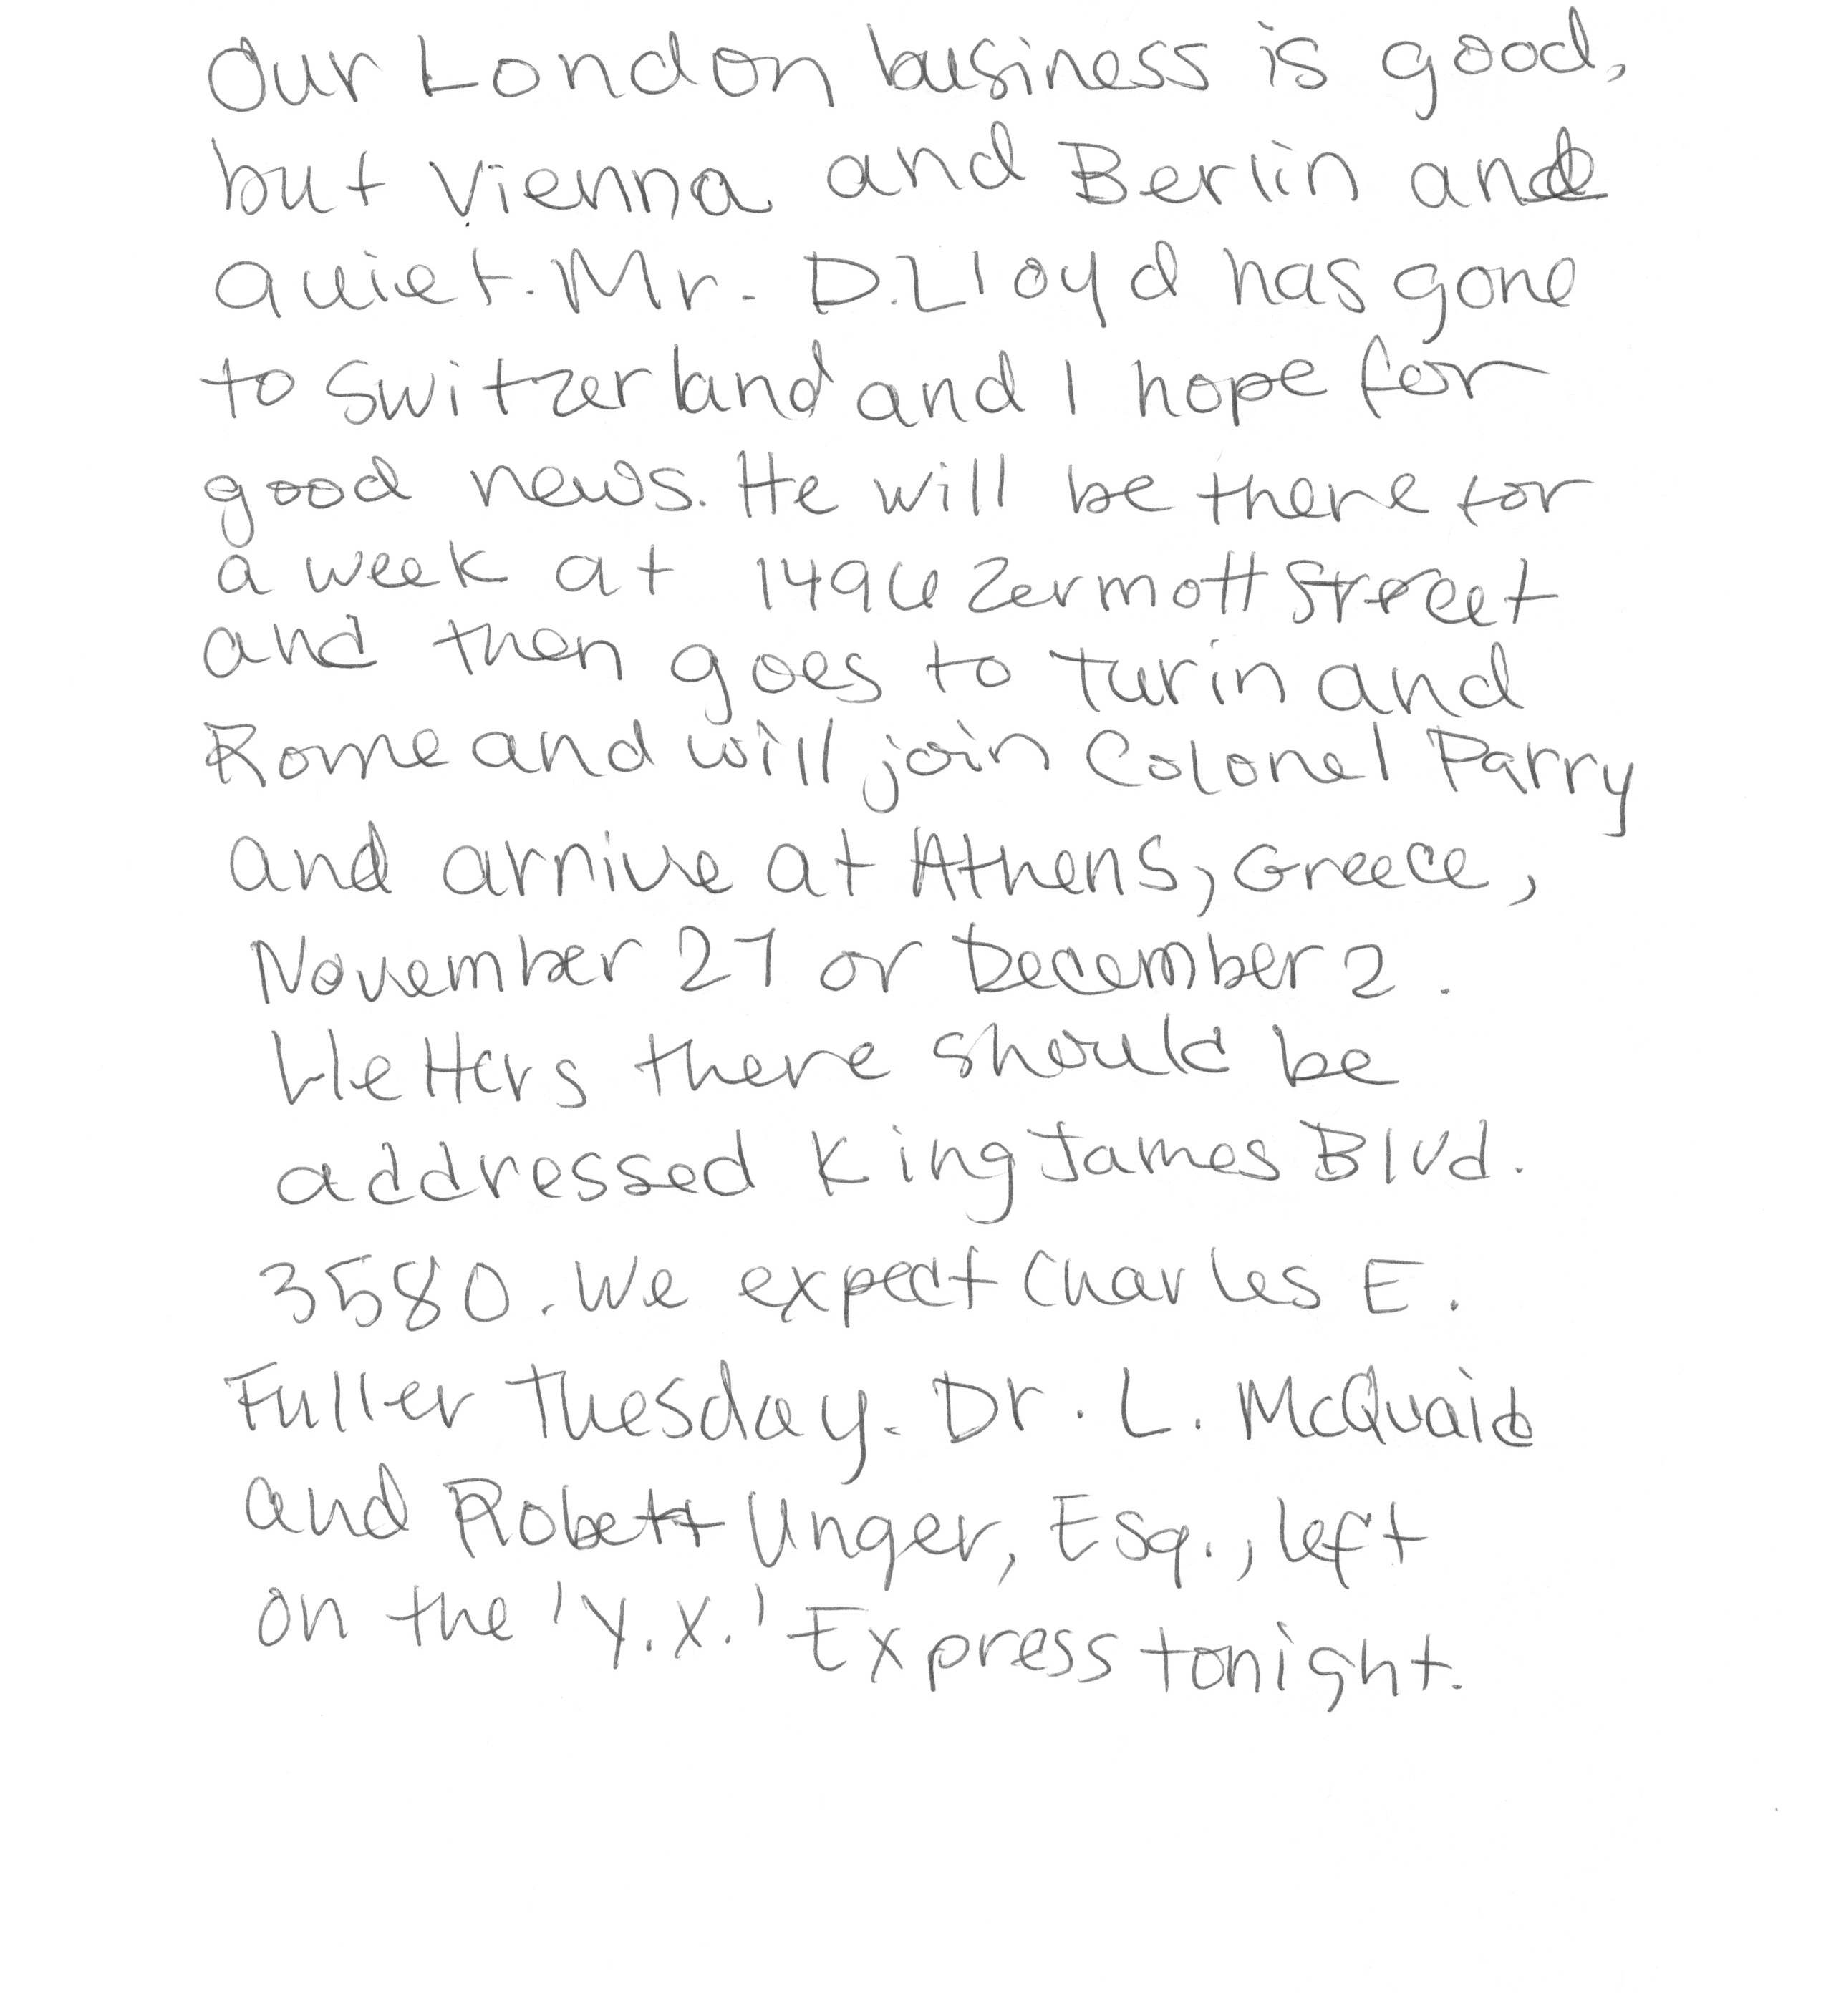 Our London business is good,
but Vienna and Berlin and
quiet. Mr. D. Lloyd has gone
to Switzerland and I hope for
good news. He will be there for
a week at 1496 Zermott Street
and then goes to Turin and
Rome and will join Colonel Parry
and arrive at Athens, Greece,
November 27 or December 2.
Letters there should be
addressed King James Blvd.
3580. We expect Charles E.
Fuller Tuesday. Dr. L. McQuaid
and Robert Unger, Esq., left
on the 'Y.X.' Express tonight.